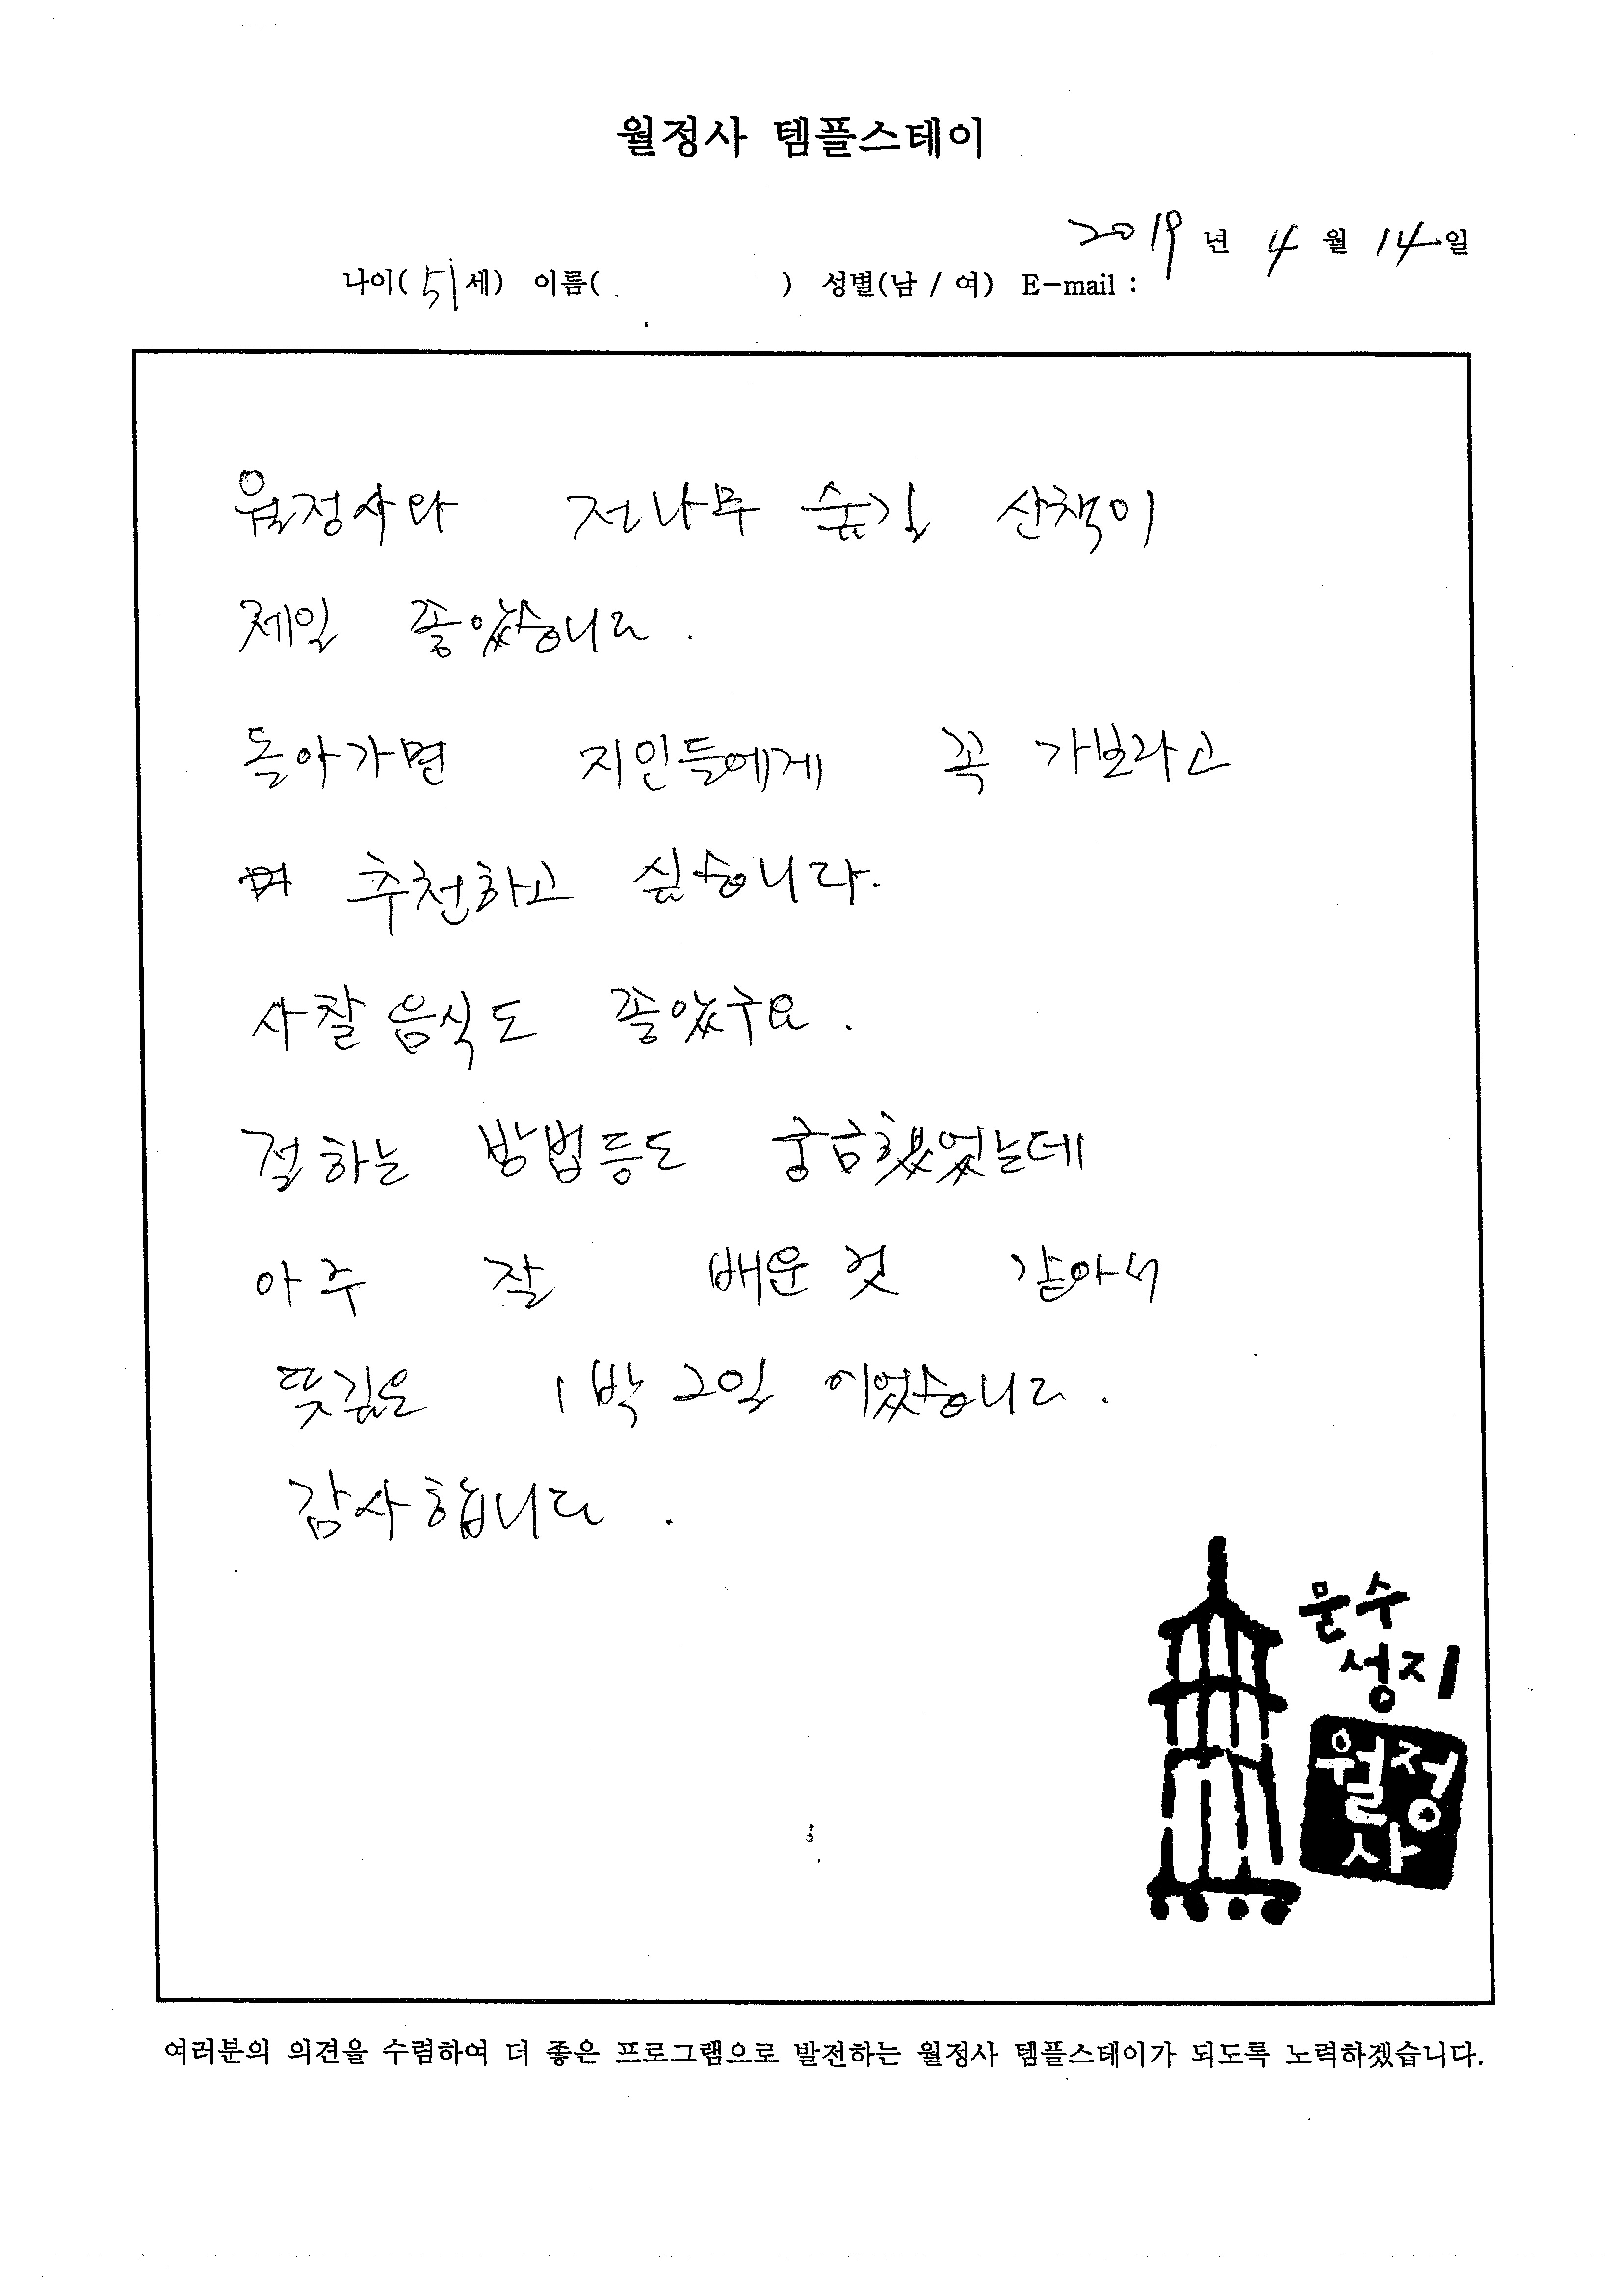 월정사 템플스테이
2019년 4월 14일
나이(51세) 이름( ) 성별(남 / 여) E-mail :
월정사와 전나무 숲길 산책이
제일 좋았습니다.
돌아가면 지인들에게 꼭 가보라고
추천하고 싶습니다.
사찰음식도 좋았구요.
절하는 방법등도 궁금했었는데
아주 잘 배운것 같아서
뜻깊은 1박2일 이었습니다.
감사합니다.
문수
성지
월정
사
여러분의 의견을 수렴하여 더 좋은 프로그램으로 발전하는 월정사 템플스테이가 되도록 노력하겠습니다.